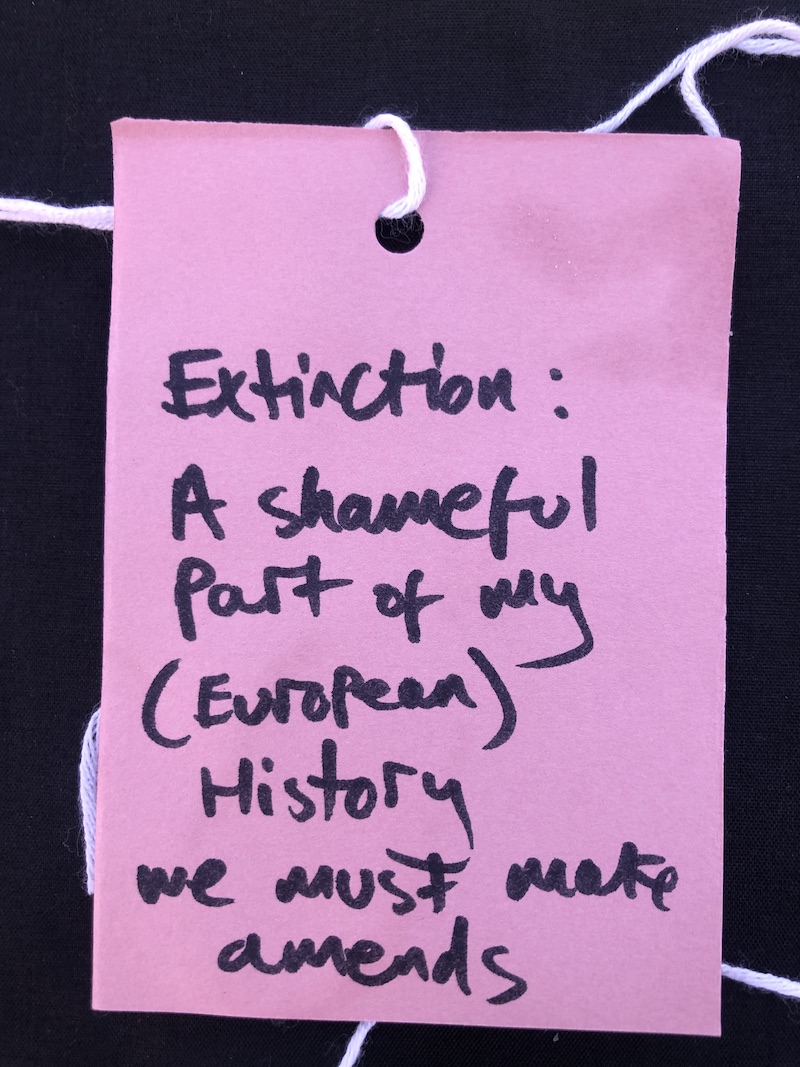 Extinction:
A shameful
Part of my
(European)
History
we must make
amends